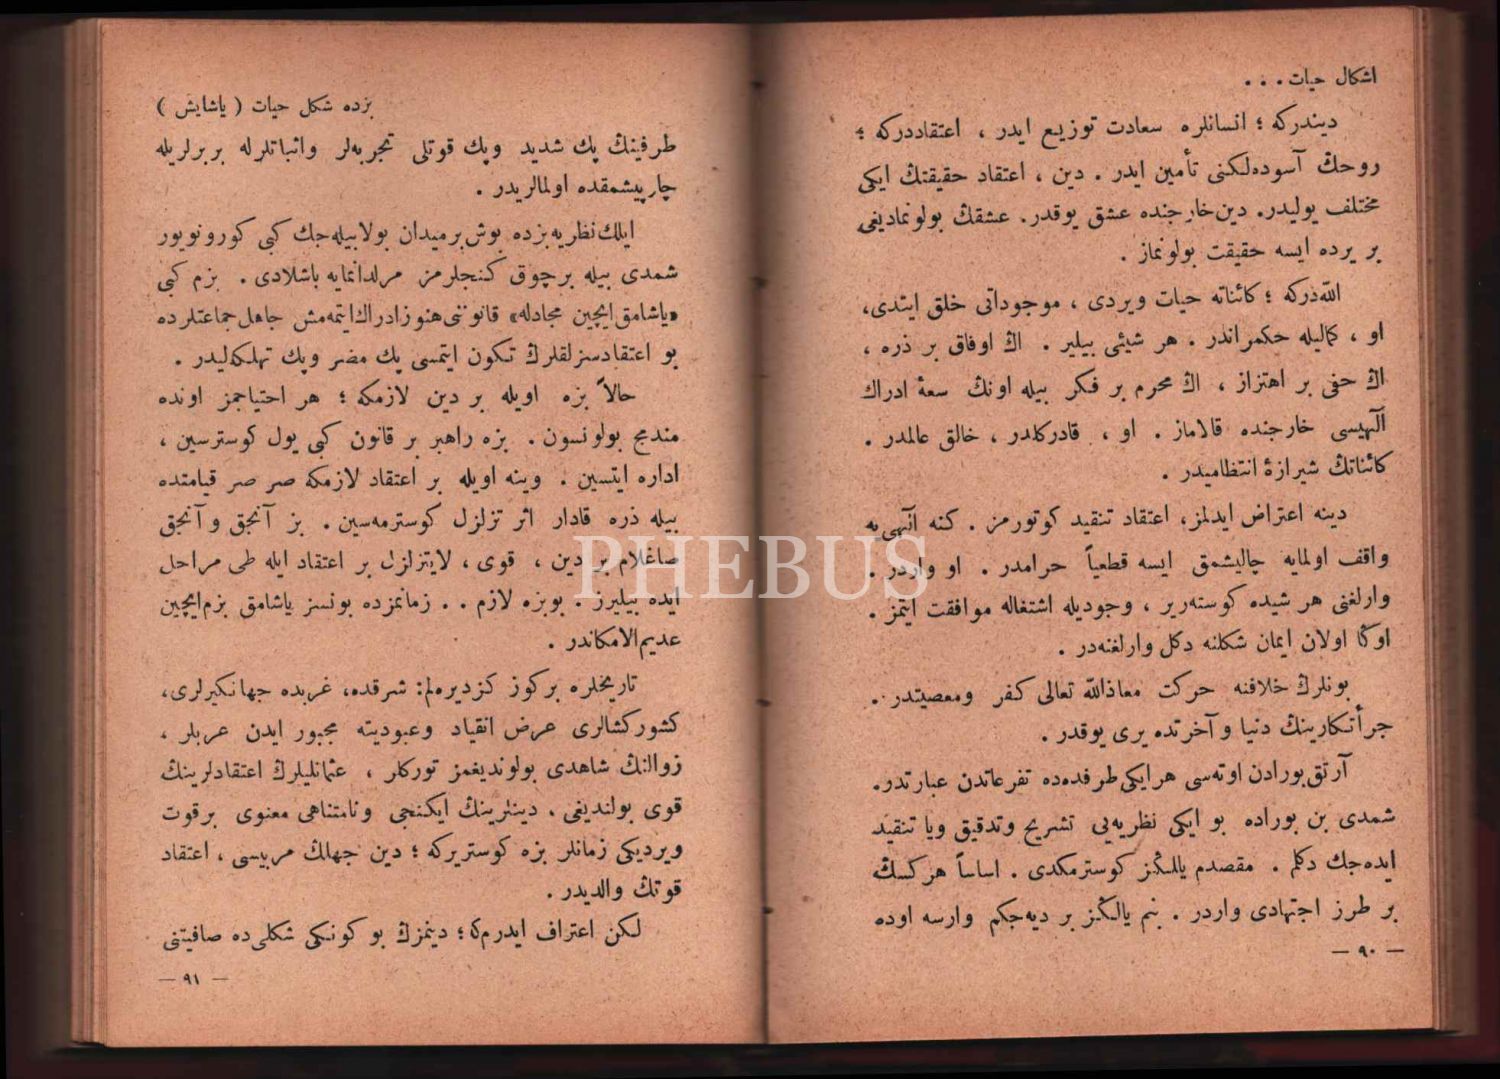 اشكال حیات . . .
دیندركه ؛ انسانلره سعادت توزیع ایدر ، اعتقاددركه ؛
روحڭ آسوده‌لكنی تأمین ایدر . دین ، اعتقاد حقیقتڭ ایكی
مختلف یولیدر. دین خارجنده عشق یوقدر. عشقڭ بولونمادیغی
بر یرده ایسه حقیقت بولونماز .
اللّه‌دركه ؛ كائناته حیات ویردی ، موجوداتی خلق ایتدی،
او ، كمالیله حكمراندر . هر شیئی بیلیر . اڭ اوفاق بر ذره ،
اڭ خفی بر اهتزاز ، اڭ محرم بر فكر بیله اونڭ سعهٔ ادراك
آلهیسی خارجنده قالاماز . او ، قادركلدر ، خالق عالمدر .
كائناتڭ شیرازهٔ انتظامیدر .
دینه اعتراض ایدلمز، اعتقاد تنقید كوتورمز . كنه آلهی‌یه
واقف اولمایه چالیشمق ایسه قطعیاً حرامدر . او واردر .
وارلغنی هر شیده كوسته‌ریر ، وجودیله اشتغاله موافقت ایتمز .
اوڭا اولان ایمان شكلنه دكل وارلغنه‌در .
بونلرڭ خلافنه حركت معاذاللّه تعالی كفر ومعصیتدر .
جرأتكارینڭ دنیا و آخرتده یری یوقدر .
آرتق بورادن اوته‌سی هرایكی طرفده‌ده تفرعاتدن عبارتدر.
شمدی بن بوراده بو ایكی نظریه‌یی تشریح وتدقیق ویا تنقید
ایده‌جك دكلم . مقصدم یالڭز كوسترمكدی . اساساً هركسڭ
بر طرز اجتهادی واردر . بنم یالڭز بر دیه‌جكم وارسه اوده
— ٩٠ —
بزده شكل حیات ( یاشایش )
طرفینڭ پك شدید وپك قوتلی تجربه‌لر واثباتلرله بربرلریله
چارپیشمقده اولمالریدر .
ایلك نظریه بزده بوش برمیدان بولابیله‌جك كبی كورونویور
شمدی بیله بر چوق كنجلرمز مرلدانمایه باشلادی . بزم كبی
«یاشامق ایچین مجادله» قانوننی هنوز ادراك ایتمه‌مش جاهل جماعتلرده
بو اعتقادسزلقلرڭ تكون ایتمسی پك مضر وپك تهلكه‌لیدر .
حالاً بزه اویله بر دین لازمكه ؛ هر احتیاجمز اونده
مندمج بولونسون . بزه راهبر بر قانون كبی یول كوسترسین ،
اداره ایتسین . وینه اویله بر اعتقاد لازمكه صر صر قیامتده
بیله ذره قادار اثر تزلزل كوسترمه‌سین . بز آنجق و آنجق
صاغلام بر دین ، قوی ، لایتزلزل بر اعتقاد ایله طی مراحل
ایده بیلیرز . بوبزه لازم . . زمانمزده بونسز یاشامق بزم ایچین
عدیم‌الامكاندر .
تاریخلره بركوز كزدیره‌لم: شرقده، غربده جهانكیرلری،
كشوركشالری عرض انقیاد وعبودیته مجبور ایدن عربلر ،
زوالنڭ شاهدی بولوندیغمز توركلر ، عثمانلیلرڭ اعتقادلرینڭ
قوی بولندیغی ، دینلرینڭ ایكنجی ونامتناهی معنوی برقوت
ویردیكی زمانلر بزه كوستریركه ؛ دین جهلڭ مربیسی ، اعتقاد
قوتڭ والدیدر .
لكن اعتراف ایدرم‌كه؛ دینمزڭ بو كونكی شكلی‌ده صافیتنی
— ٩١ —
PHEBUS